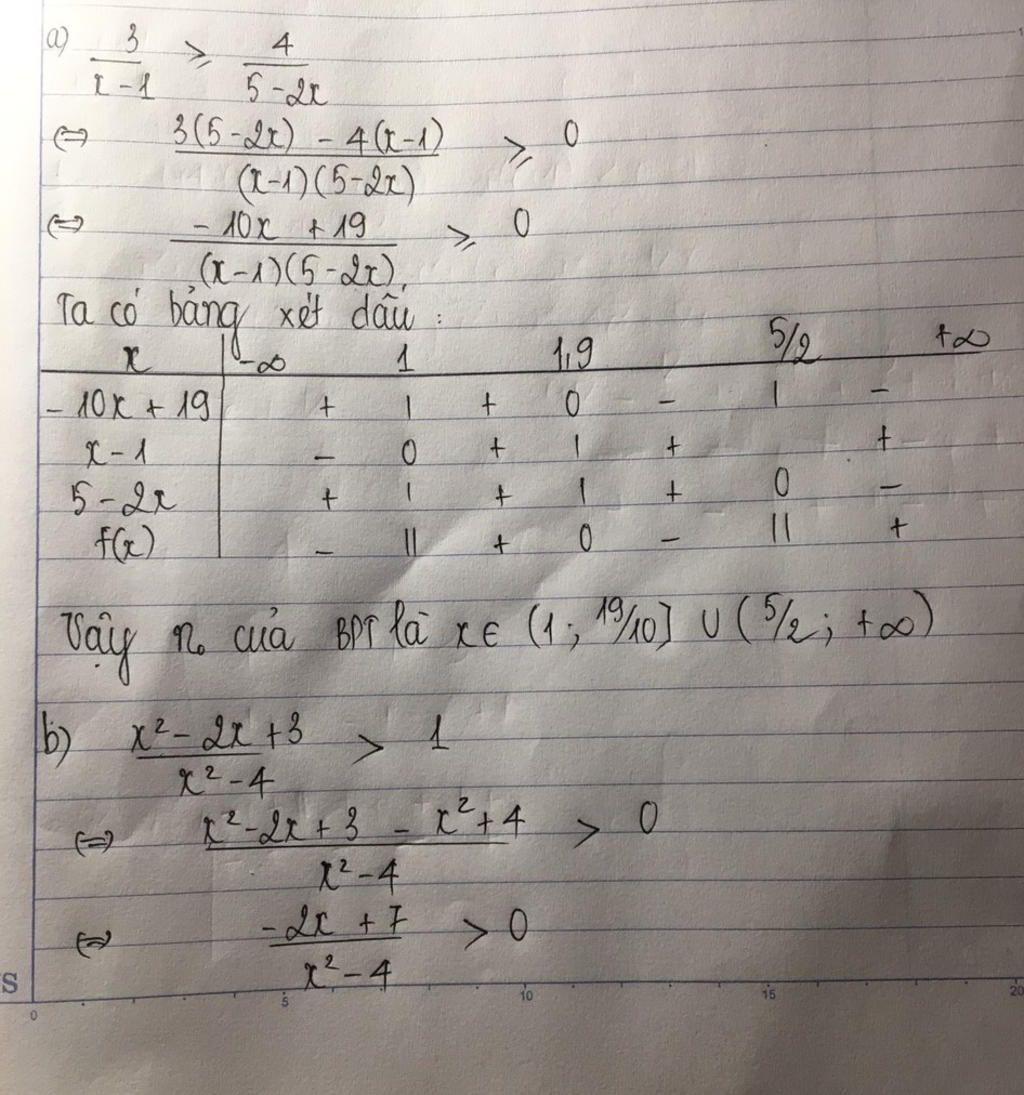 a) 3/(x-1) ≥ 4/(5-2x)
⇔ (3(5-2x) - 4(x-1))/((x-1)(5-2x)) ≥ 0
⇔ (-10x + 19)/((x-1)(5-2x)) ≥ 0
Ta có bảng xét dấu :
x | -∞ 1 1,9 5/2 +∞
-10x + 19 | + | + 0 - | -
x-1 | - 0 + | + +
5-2x | + | + | + 0 -
f(x) | - || + 0 - || +
Vậy no của BPT là x ∈ (1; 19/10] ∪ (5/2; +∞)
b) (x² - 2x + 3)/(x² - 4) > 1
⇔ (x² - 2x + 3 - x² + 4)/(x² - 4) > 0
⇔ (-2x + 7)/(x² - 4) > 0
S
0 5 10 15 20